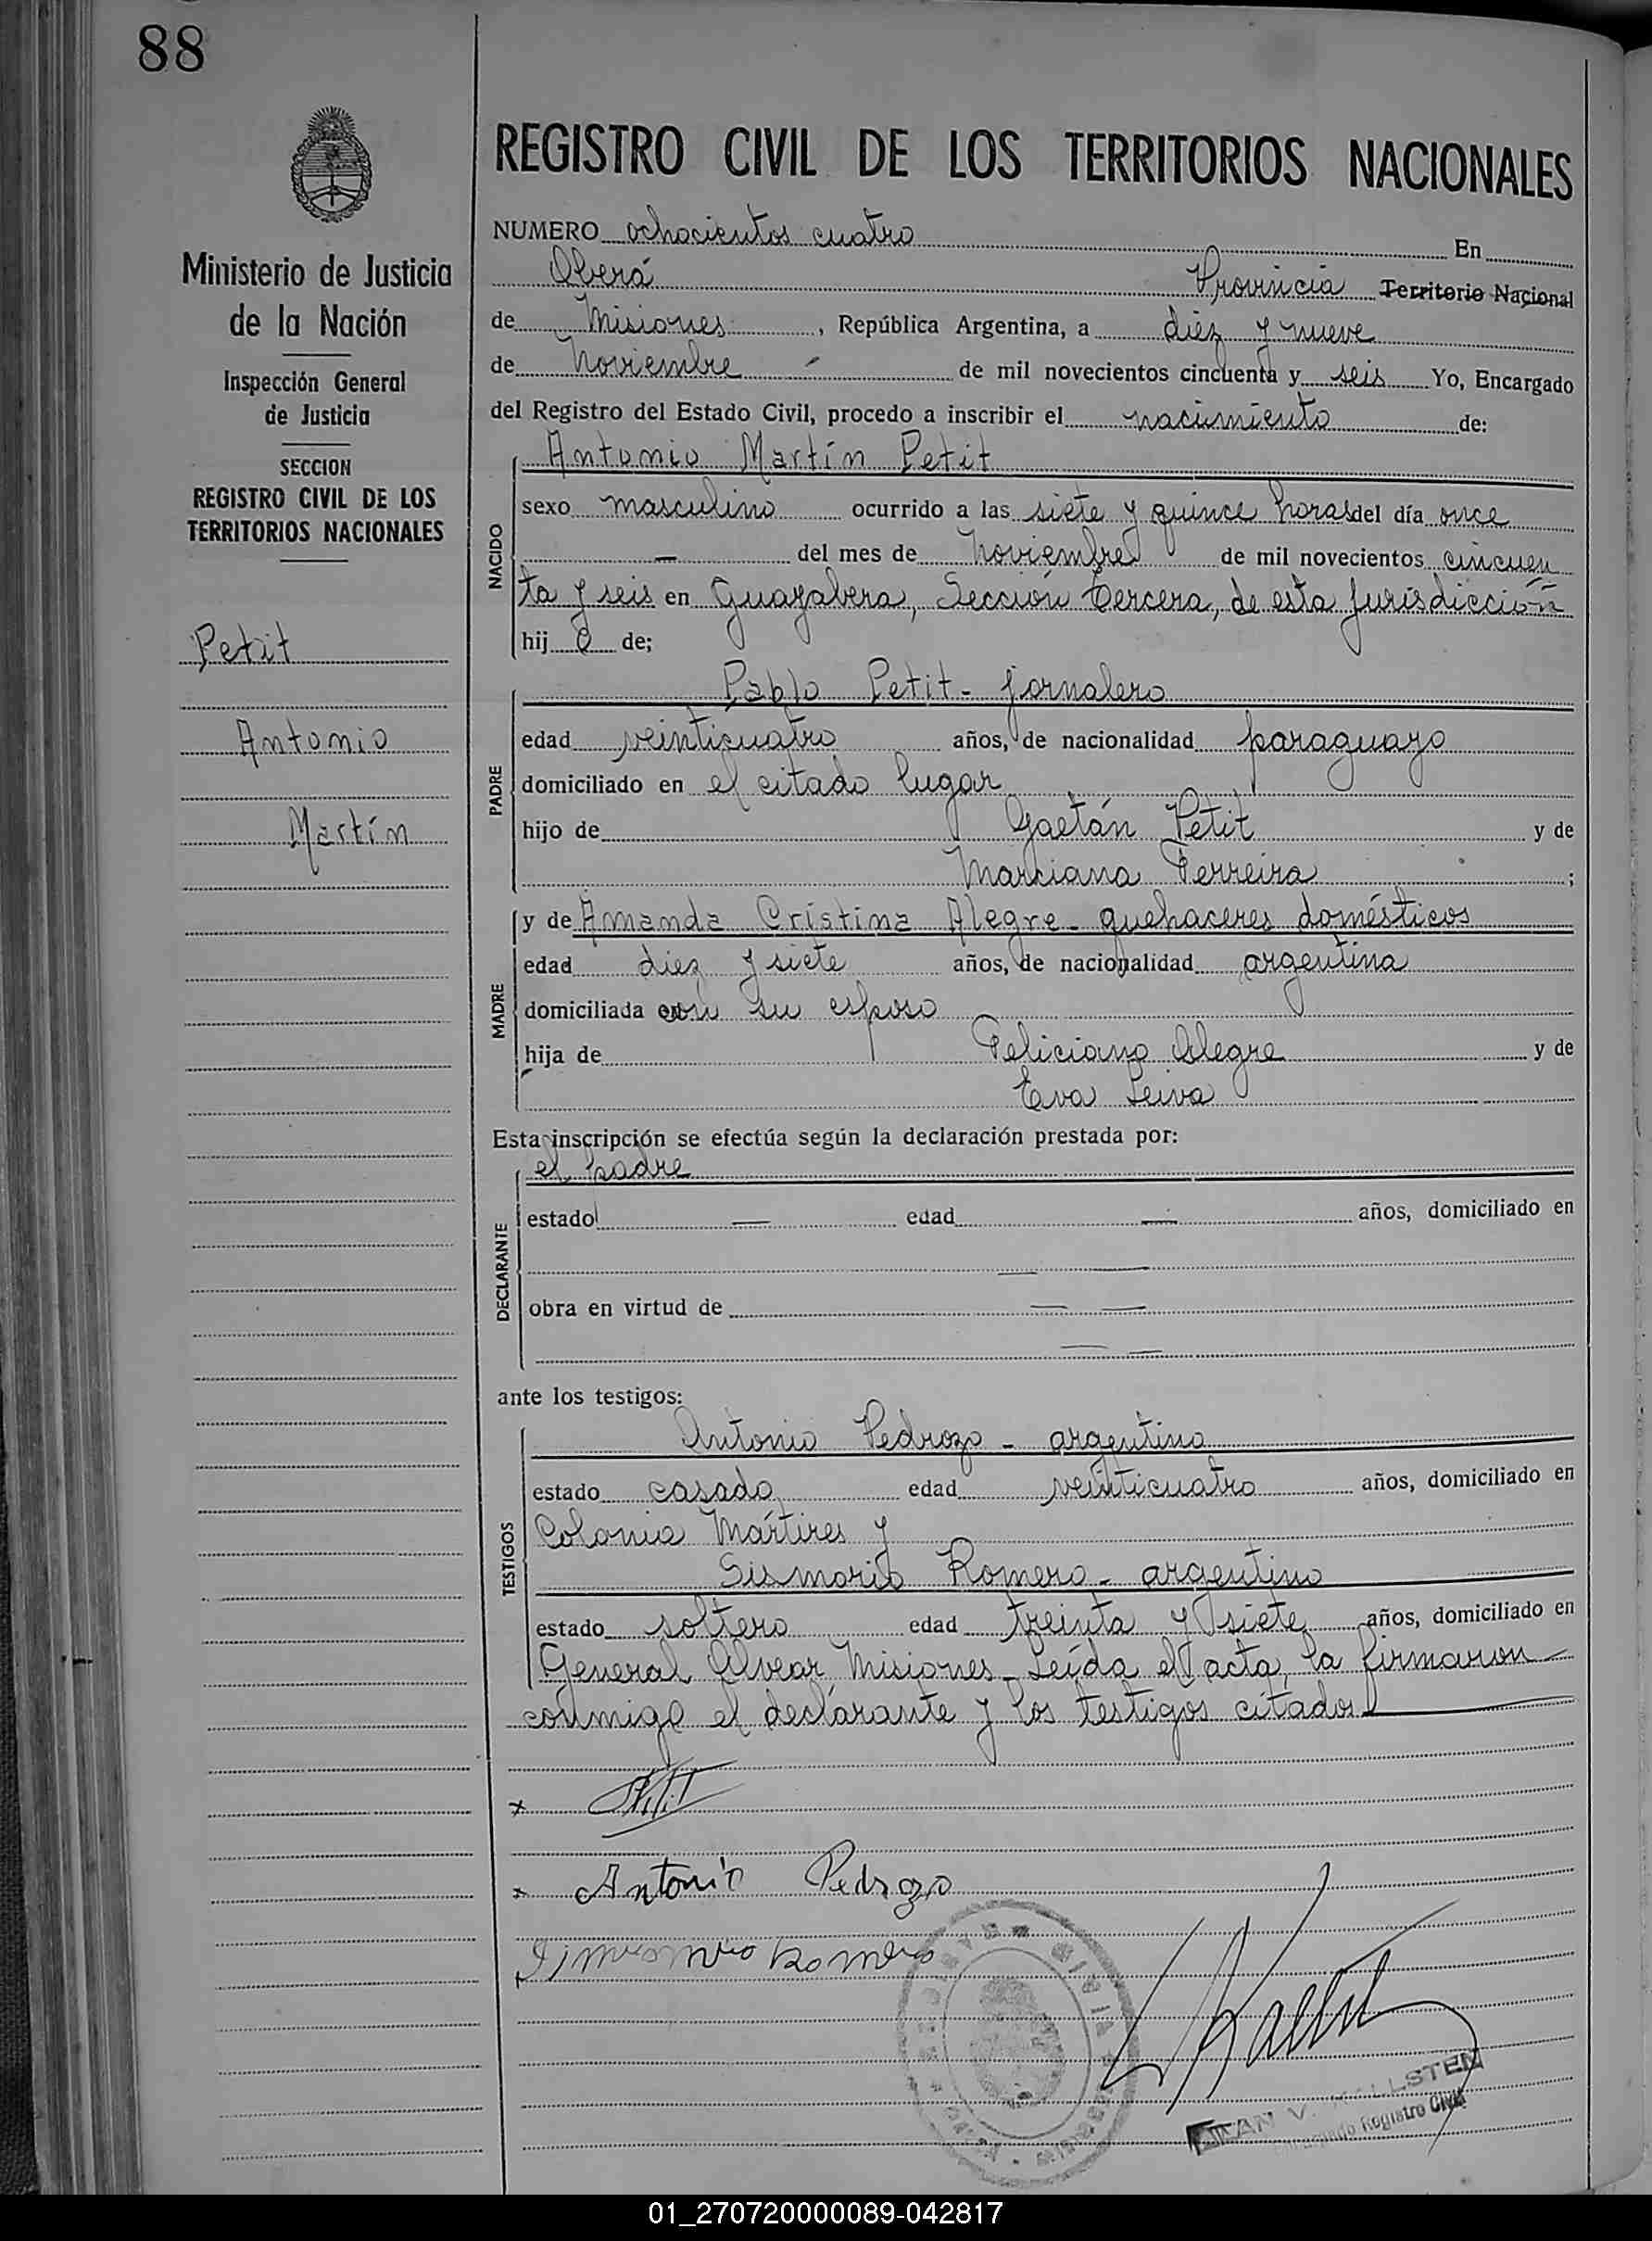 88
REGISTRO CIVIL DE LOS TERRITORIOS NACIONALES
Ministerio de Justicia
de la Nación
Inspección General
de Justicia
SECCION
REGISTRO CIVIL DE LOS
TERRITORIOS NACIONALES
Petit
Antonio
Martín
NUMERO ochocientos cuatro En
Oberá Provincia Territorio Nacional
de Misiones, República Argentina, a diez y nueve
de Noviembre de mil novecientos cincuenta y seis Yo, Encargado
del Registro del Estado Civil, procedo a inscribir el nacimiento de:
NACIDO
Antonio Martín Petit
sexo masculino ocurrido a las siete y quince horas del día once
— del mes de Noviembre de mil novecientos cincuen
ta y seis en Guayabera, Sección Tercera, de esta Jurisdicción
hij o de;
PADRE
Pablo Petit - jornalero
edad veinticuatro años, de nacionalidad paraguayo
domiciliado en el citado lugar
hijo de Gaetán Petit y de
Marciana Ferreira ;
MADRE
y de Amanda Cristina Alegre - quehaceres domésticos
edad diez y siete años, de nacionalidad argentina
domiciliada con su esposo
hija de Feliciano Alegre y de
Eva Leiva
Esta inscripción se efectúa según la declaración prestada por:
DECLARANTE
el padre
estado — edad — años, domiciliado en
— —
obra en virtud de — —
— —
ante los testigos:
TESTIGOS
Antonio Pedrozo - argentino
estado casado edad veinticuatro años, domiciliado en
Colonia Mártires y
Sismorio Romero - argentino
estado soltero edad treinta y siete años, domiciliado en
General Alvear Misiones - Leída el acta, la firmaron
conmigo el declarante y los testigos citados
x Petit
x Antonio Pedrozo
Romero
V. HALLSTEN
Encargado Registro Civil
01_270720000089-042817